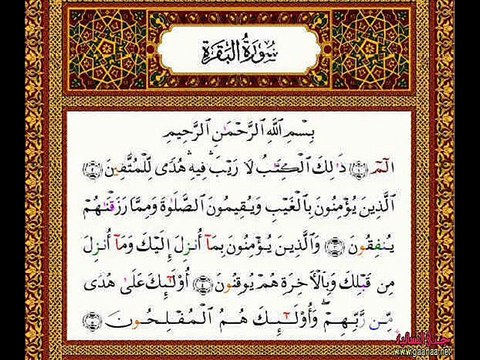 سُورَةُ البَقَرَةِ
بِسْمِ ٱللَّهِ ٱلرَّحْمَٰنِ ٱلرَّحِيمِ
الٓمٓ ۝١ ذَٰلِكَ ٱلْكِتَٰبُ لَا رَيْبَ ۛ فِيهِ ۛ هُدًى لِّلْمُتَّقِينَ ۝٢
ٱلَّذِينَ يُؤْمِنُونَ بِٱلْغَيْبِ وَيُقِيمُونَ ٱلصَّلَوٰةَ وَمِمَّا رَزَقْنَٰهُمْ
يُنفِقُونَ ۝٣ وَٱلَّذِينَ يُؤْمِنُونَ بِمَآ أُنزِلَ إِلَيْكَ وَمَآ أُنزِلَ
مِن قَبْلِكَ وَبِٱلْءَاخِرَةِ هُمْ يُوقِنُونَ ۝٤ أُو۟لَٰٓئِكَ عَلَىٰ هُدًى
مِّن رَّبِّهِمْ ۖ وَأُو۟لَٰٓئِكَ هُمُ ٱلْمُفْلِحُونَ ۝٥
www.gaanaa.net